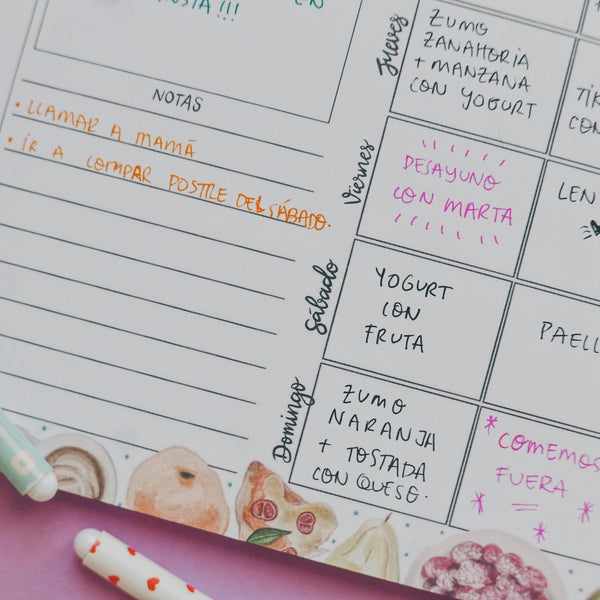 EN
NOTAS
• LLAMAR A MAMÁ
• IR A COMPAR POSTRE DEL SÁBADO.
Jueves
ZUMO
ZANAHORIA
+ MANZANA
CON YOGURT
CON
Viernes
DESAYUNO
CON MARTA
Sábado
YOGURT
CON
FRUTA
Domingo
ZUMO
NARANJA
+ TOSTADA
CON QUESO.
COMEMOS
FUERA